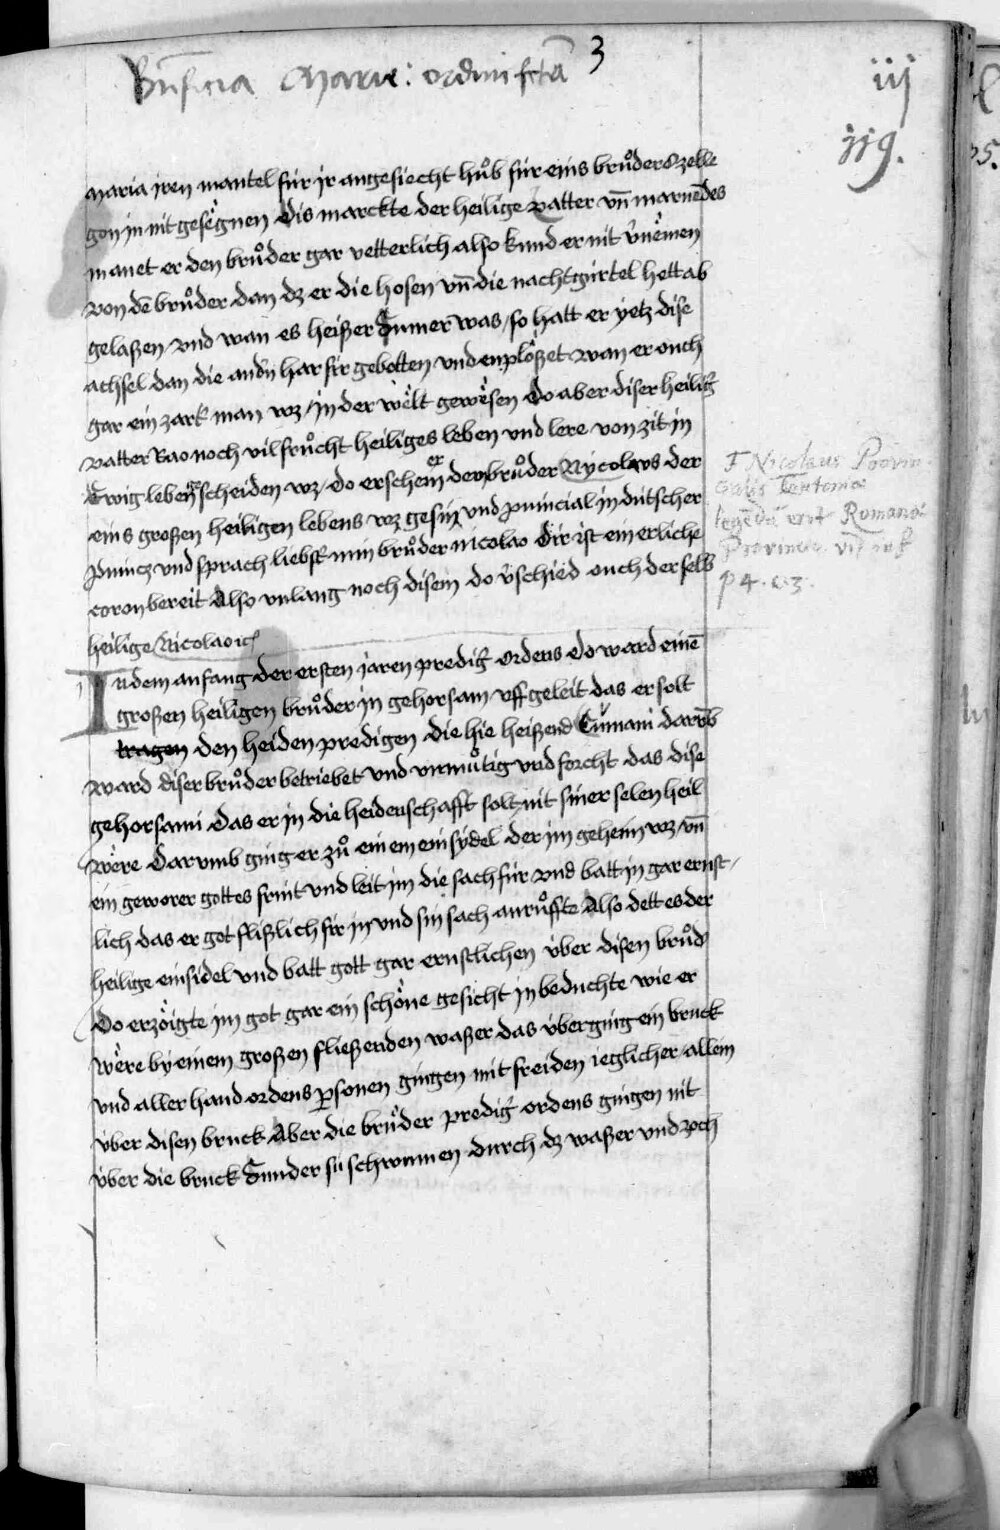 Bn̄ficia Marie: ordini fcta 3
iij
119.
maria iren mantel für ir angesiecht hůb für eins brůders zelle
gon in nit gesëgnen Dis marckte der heilige vatter vn̄ marnēdes
manet er den brůder gar vetterlich also kund er nit v̓nëmen
von dē brůder dan dz er die hosen vn̄ die nachtgürtel hett ab
gelaßen vnd wan es heißer Sumer was / so hatt er yetz dise
achsel dan die andn̓ harfür gebotten vnd enplößet wan er ouch
gar ein zark man wz / in der wëlt gewësen Do aber diser heilig̓
vatter Rao noch vil frůcht heiliges leben vnd lere von zit in
Ewig leben gescheiden wz / do erschein er dem brůder Nycolaus der
eins großen heiligen lebens wz gesin vnd prouincial in dütscher
prouincz vnd sprach liebster min brůder nicolao Dir ist ein erliche
coron bereit Also vnlang noch disem do v̓schied ouch der selb
heilige Nicolao ic̓
F Nicolaus Provin
Teutoniæ
legēdū erit Romanæ
Provinciæ
p 4. c. 3.
In dem anfang der ersten jaren predig̓ ordens Do ward einē
großen heiligen brůder in gehorsam vffgeleit das er solt
tragen den heiden predigen die hie heißend Cumani darūb
ward diser brůder betriebet vnd vnmůtig vnd forcht das dise
gehorsami Das er in die heidenschafft solt nit siner selen heil
wëre Darvmb ging er zů einem einsydel der im geheim wz vn̄
ein geworer gottes frint vnd leit im die sach für vnd batt in gar ernst-
lich das er got flißlich für in vnd sin sach anrůffte Also dett es der
heilige einsidel vnd batt gott gar ernstlichen über disen brůd̓
Do erzöigte im got gar ein schöne gesicht in beduchte wie er
wëre by einem großen fließenden waßer das überging ein bruck
vnd aller hand ordens p̱sonen gingen mit freiden ieglicher allein
über disen bruck Aber die brüder predig̓ ordens gingen nit
über die bruck Sunder sü schwumen durch dz waßer vnd zoch